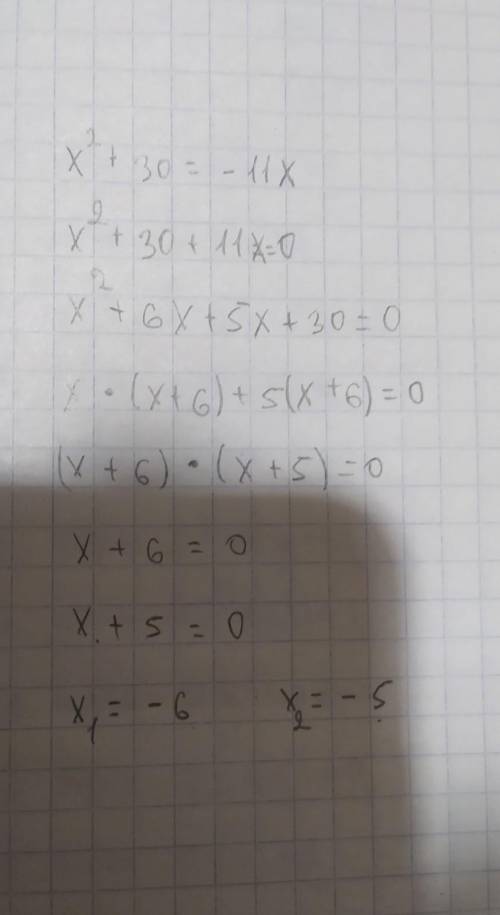 x² + 30 = -11x
x² + 30 + 11x=0
x² + 6x + 5x + 30 = 0
x · (x+6) + 5(x+6) = 0
(x + 6) · (x + 5) = 0
x + 6 = 0
x + 5 = 0
x₁ = -6 x₂ = -5